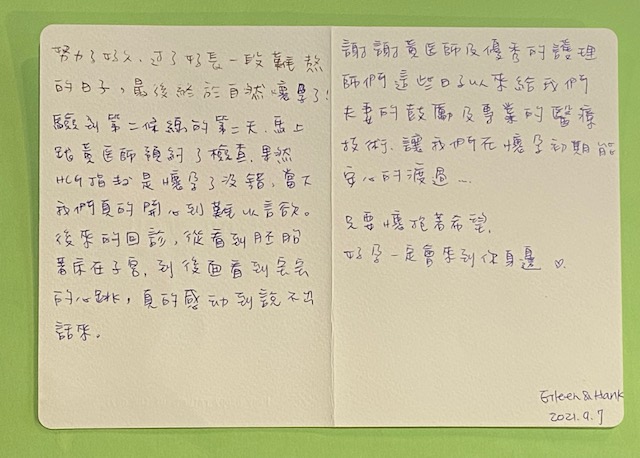 努力了好久、過了好長一段難熬
的日子，最後終於自然懷孕了！
驗到第二條線的第二天、馬上
跟黃医師預約了檢查、果然
HCG指數是懷孕了沒錯，當下
我們真的開心到難以言欲。
後來的回診，從看到胚胎
著床在子宮，到後面看到宝宝
的心跳，真的感动到說不出
話來。
謝謝黃医師及優秀的護理
師們這些日子以來給我們
夫妻的鼓勵及專業的醫療
技術、讓我們在懷孕初期能
安心的渡過…
只要懷抱著希望，
好孕一定會來到你身邊♡
Eileen & Hank
2021.9.7